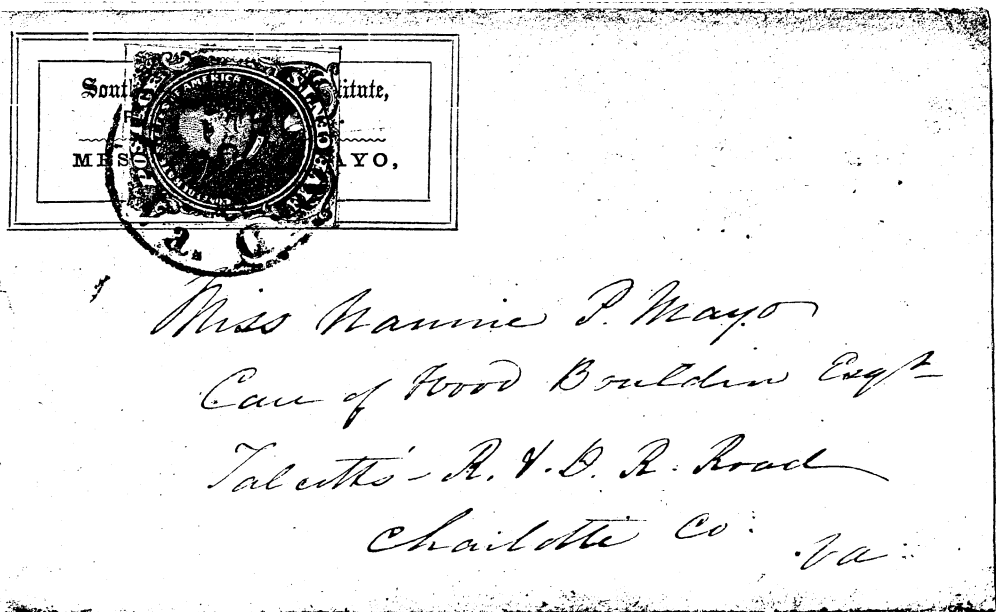 South itute,
MES AYO,
POSTAGE TEN CENTS
Miss Nannie P. Mayo
Care of Wood Bouldin Esqr
Talcott's - R. & D. R. Road
Charlotte Co.
Va